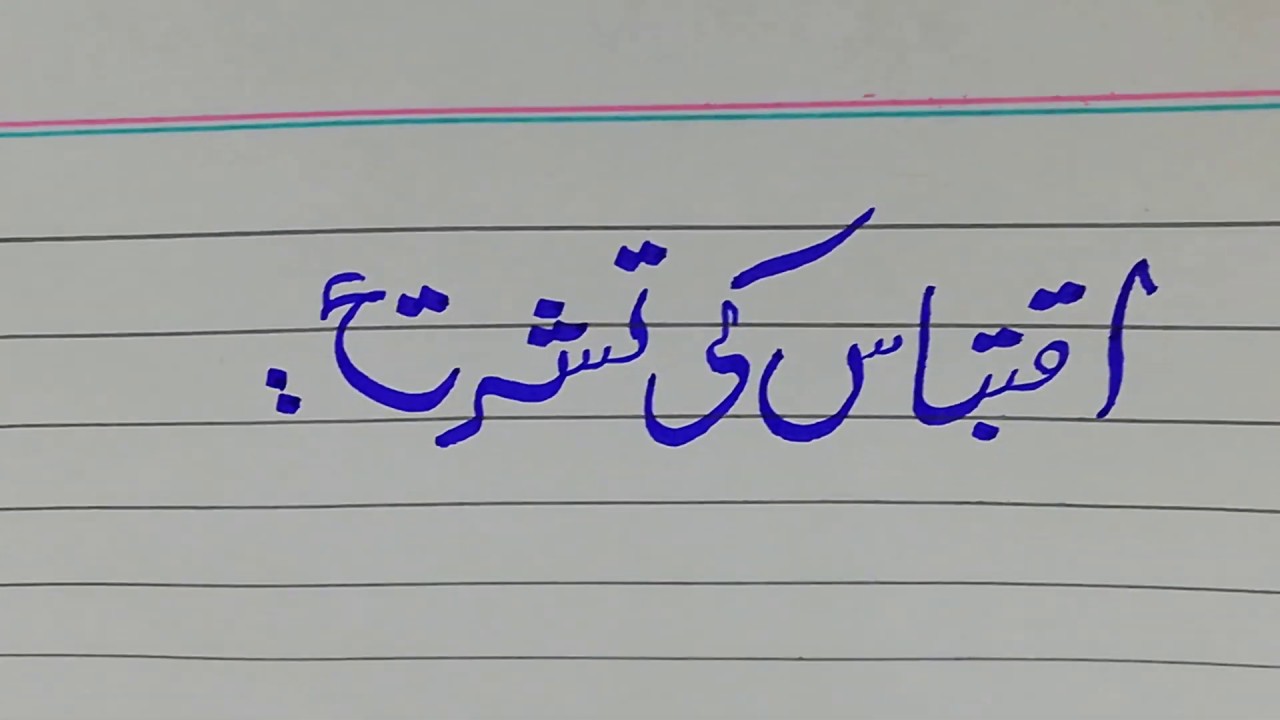 اقتباس کی تشریح :